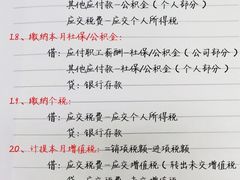 其他应付款-公积金(个人部分)
应交税费-应交个人所得税
18、缴纳本月社保/公积金:
借:应付职工薪酬-社保/公积金(公司部分)
其他应付款-社保/公积金(个人部分)
贷:银行存款
19、缴纳个税:
借:应交税费-应交个人所得税
贷:银行存款
20、计提本月增值税:=销项税额-进项税额
借:应交税费-应交增值税(转出未交增值税)